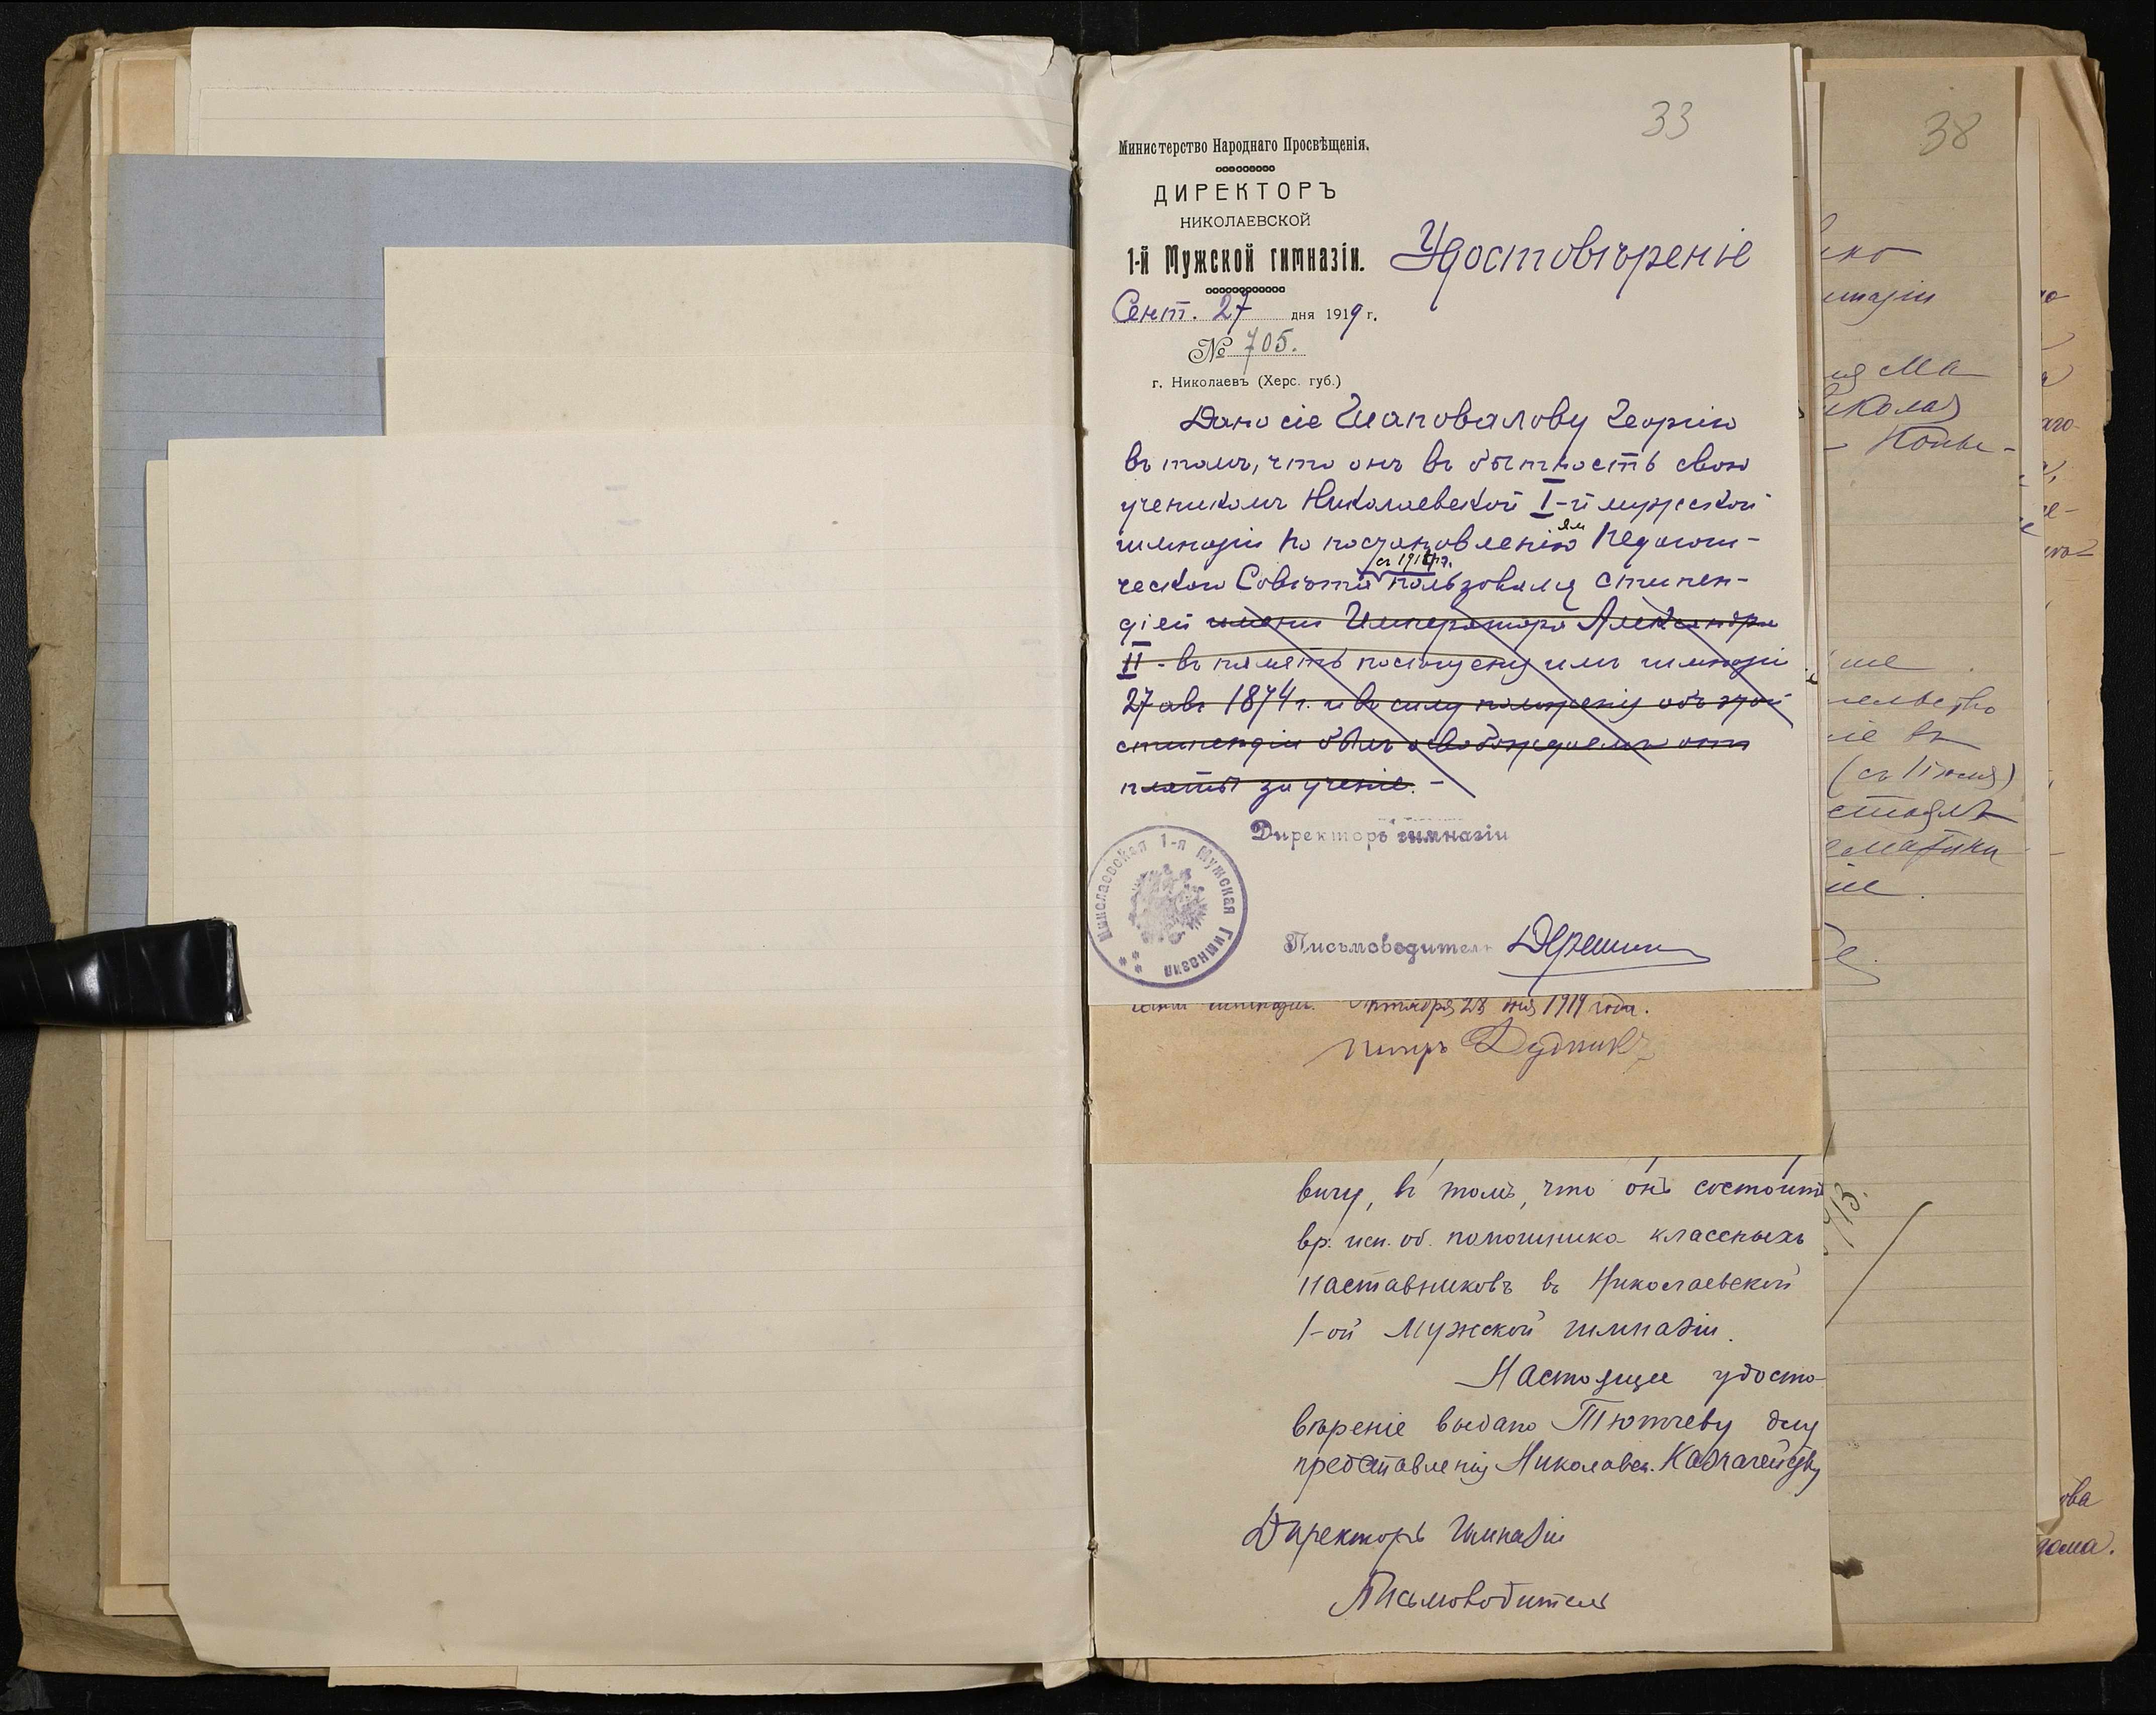 33
Министерство Народнаго Просвѣщенія.
ДИРЕКТОРЪ
НИКОЛАЕВСКОЙ
1-й Мужской гимназіи.
Удостовѣреніе
Сент. 27 дня 1919 г.
№ 705.
г. Николаевъ (Херс. губ.)
Дано сіе Шаповалову Георгію
въ томъ, что онъ въ бытность свою
ученикомъ Николаевской I-й мужской
гимназіи по постановленіямъ Педагоги-
ческаго Совѣта пользовался стипен-
діей имени Императора Александра
II - въ память посѣщенія имъ гимназіи
27 авг 1874 г. и въ силу положенія объ этой
стипендіи былъ освобождаемъ отъ
платы за ученіе. -
Директоръ гимназіи
Николаевская 1-я Мужская Гимназія
Письмоводитель
гимназіи. Октября 28 дня 1919 года.
Петръ Дудникъ
вичу, въ томъ, что онъ состоитъ
вр. исп. об. помощника классныхъ
наставниковъ въ Николаевской
1-ой Мужской гимназіи.
Настоящее удосто-
вѣреніе выдано Тютчеву для
представленія Николаевск. Казначейству
Директоръ Гимназіи
Письмоводитель
38
мназіи
ія Ма
иколая
ше
ельство
іе въ
(съ 1 іюля)
стоялъ
ематики
ова